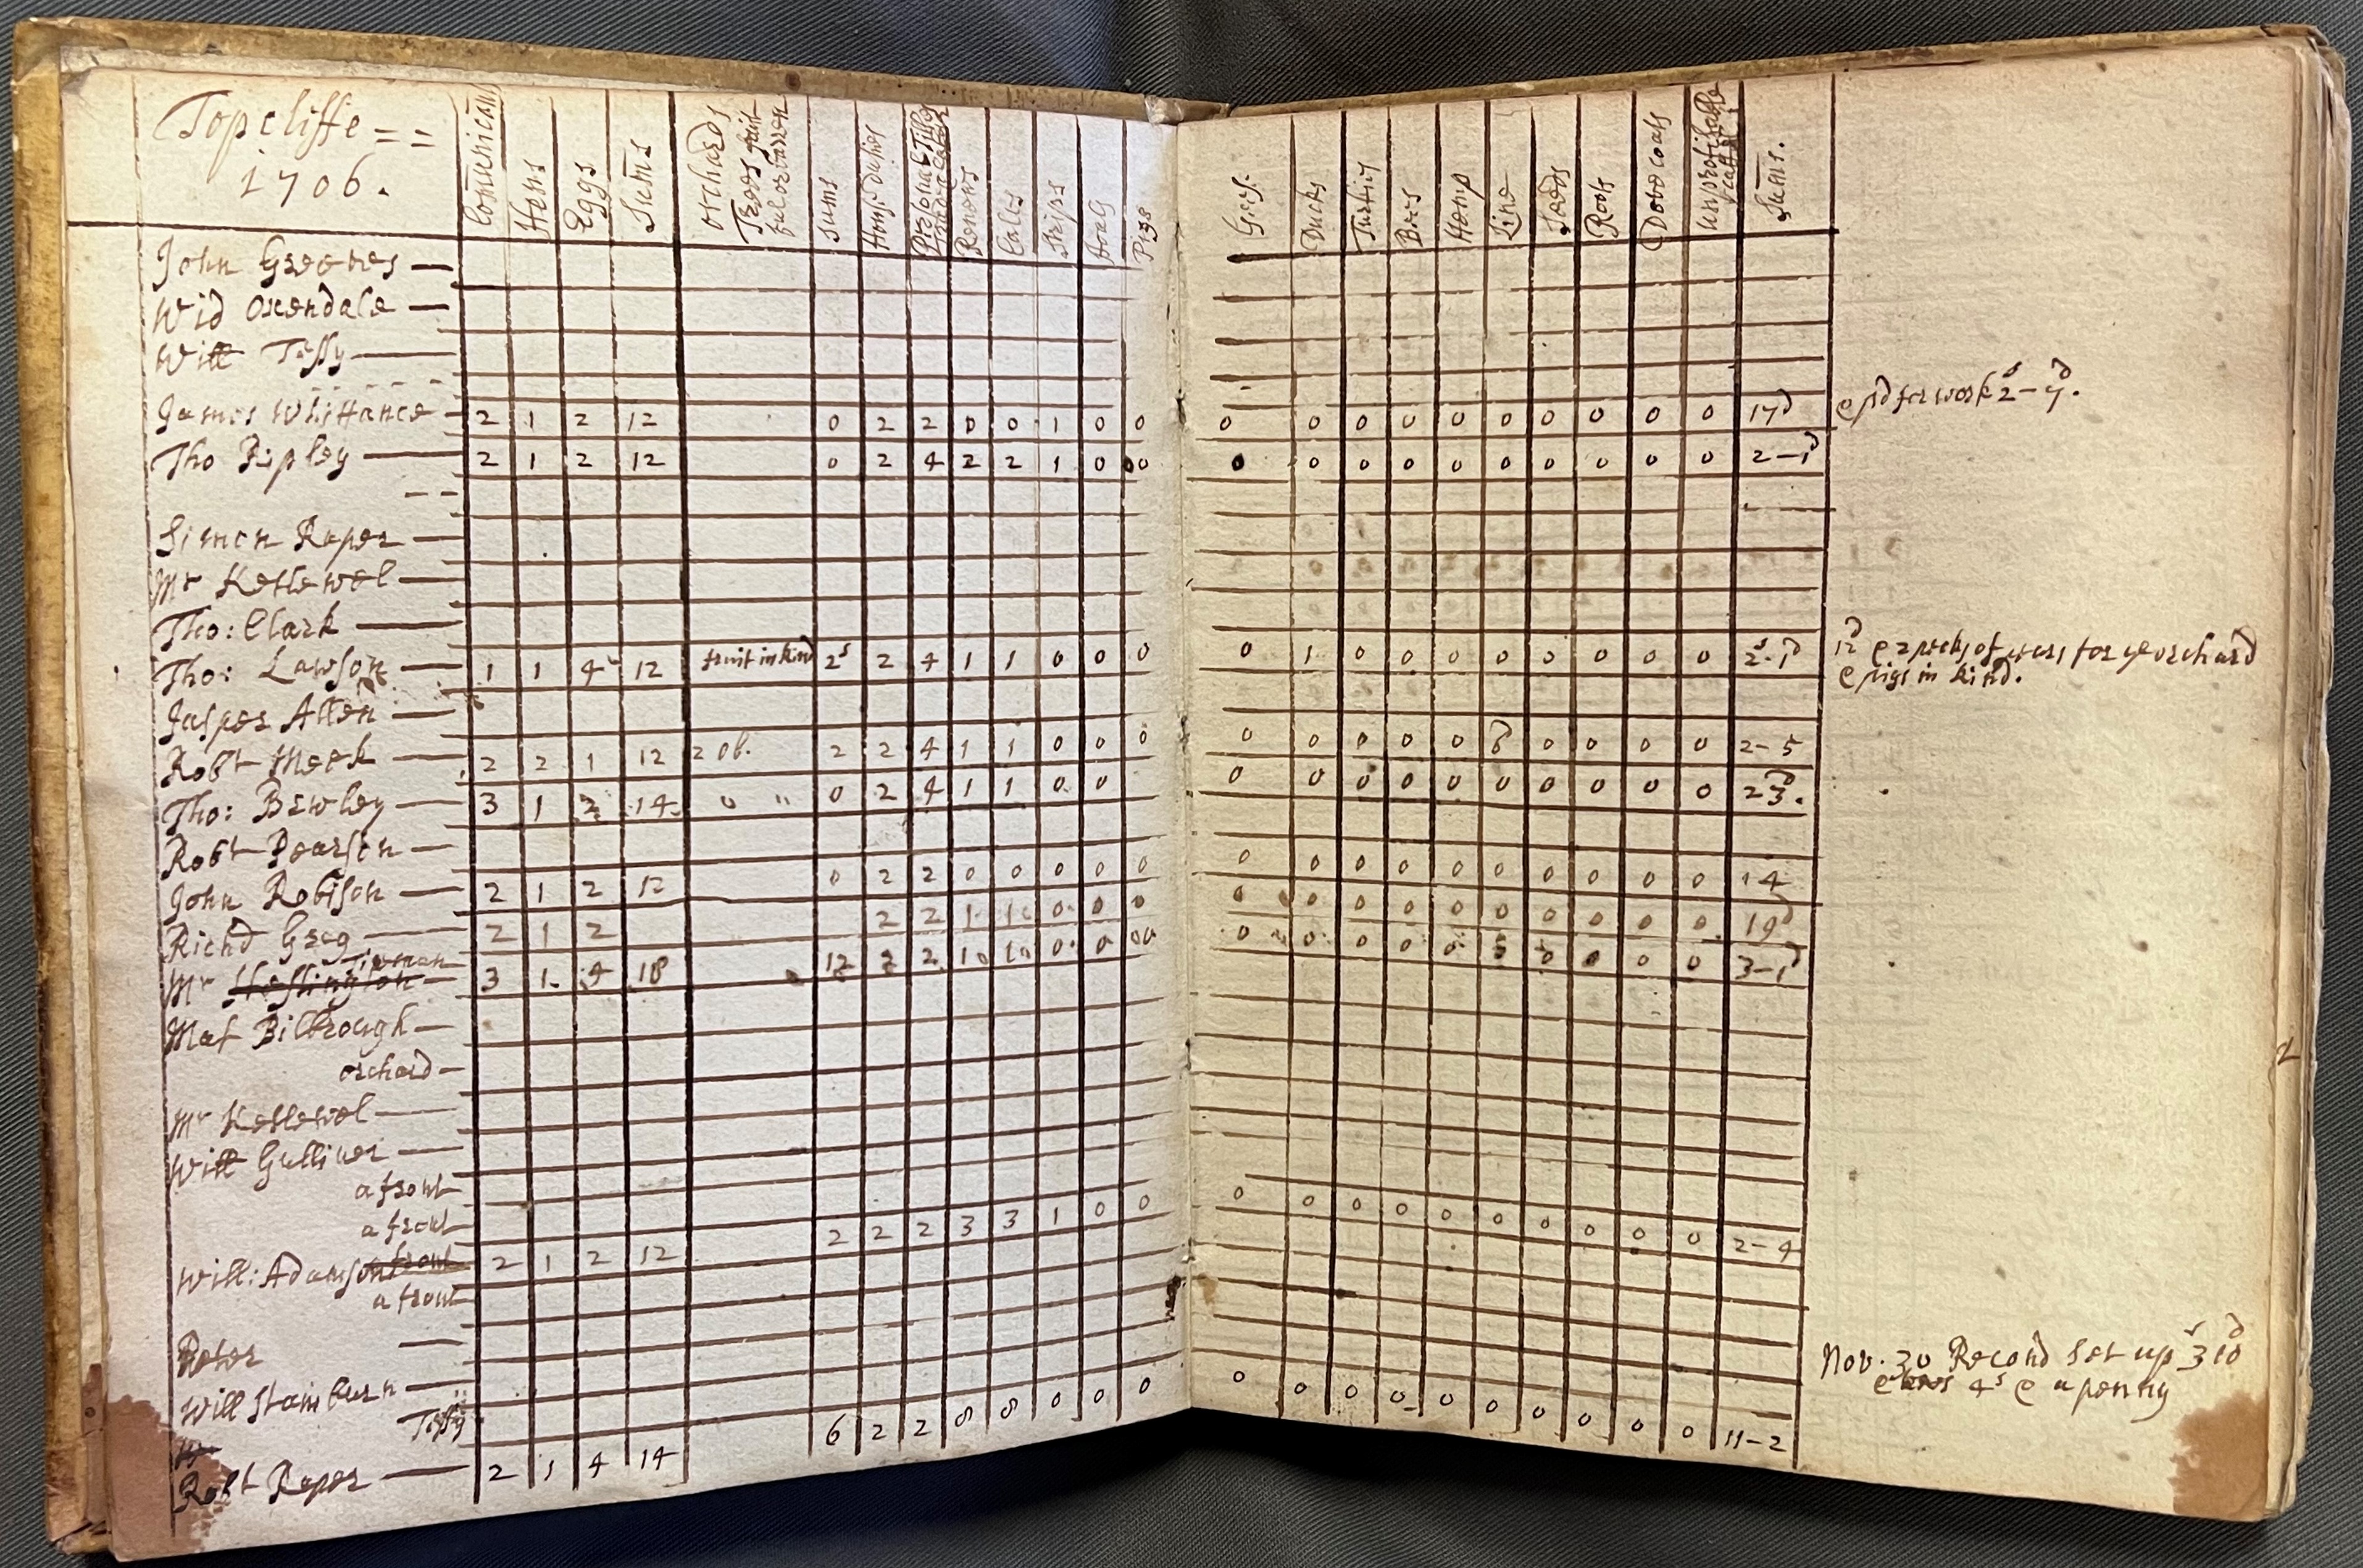 Topcliffe = =
1706.
Comunicants Hens Eggs Sums orchards Trees fruit Sums House Duties Renews Calves Strips foals Pigs Gees. Ducks Turkies Bees Hemp Line Seeds Roots Dove coats unprofitable cattle Sums.
John Greeves
Wid Oxendale
Will Tessy
James Whittance 2 1 2 12 0 2 2 0 0 1 0 0 0 0 0 0 0 0 0 0 0 0 17d e pd for work 2s-7d.
Tho Ripley 2 1 2 12 0 2 4 2 2 1 0 0 0 0 0 0 0 0 0 0 0 0 2-1d
Simon Raper
Mr Kettewel
Tho: Clark
Tho: Lawson 1 1 4 12 fruit in kind 2s 2 4 1 1 0 0 0 0 1 0 0 0 0 0 0 0 0 2s-1d 12d e 2 pecks of pears for ye orchard
e pigs in kind.
Jasper Allen
Robt Meek 2 2 1 12 2 ob. 2 2 4 1 1 0 0 0 0 0 0 0 0 0 0 0 0 2-5
Tho: Bewley 3 1 2 14 0 " 0 2 4 1 1 0 0 0 0 0 0 0 0 0 0 0 0 2 3d.
Robt Pearson
John Robison 2 1 2 12 0 2 2 0 0 0 0 0 0 0 0 0 0 0 0 0 0 0 14
Richd Greg 2 1 2 2 2 1 1 0 0 0 0 0 0 0 0 0 0 0 0 0 19d
Mr Heslington 3 1 4 18 12 2 2 0 0 0 0 0 0 0 0 0 0 0 3-1d
Mat Bilbrough
orchard
Mr Kettewel
Will Gulliver
a front
a front
Will: Adamson front 2 1 2 12 2 2 2 3 3 1 0 0 0 0 0 0 0 0 0 0 0 0 2-4
a front
Peter
Will Stainburn
Tessy
Robt Raper 2 1 4 14 6 2 2 8 8 0 0 0 0 0 0 0 0 0 0 0 0 0 11-2
Nov. 30 Record set up 3s 10d
e 4s e a penny
2